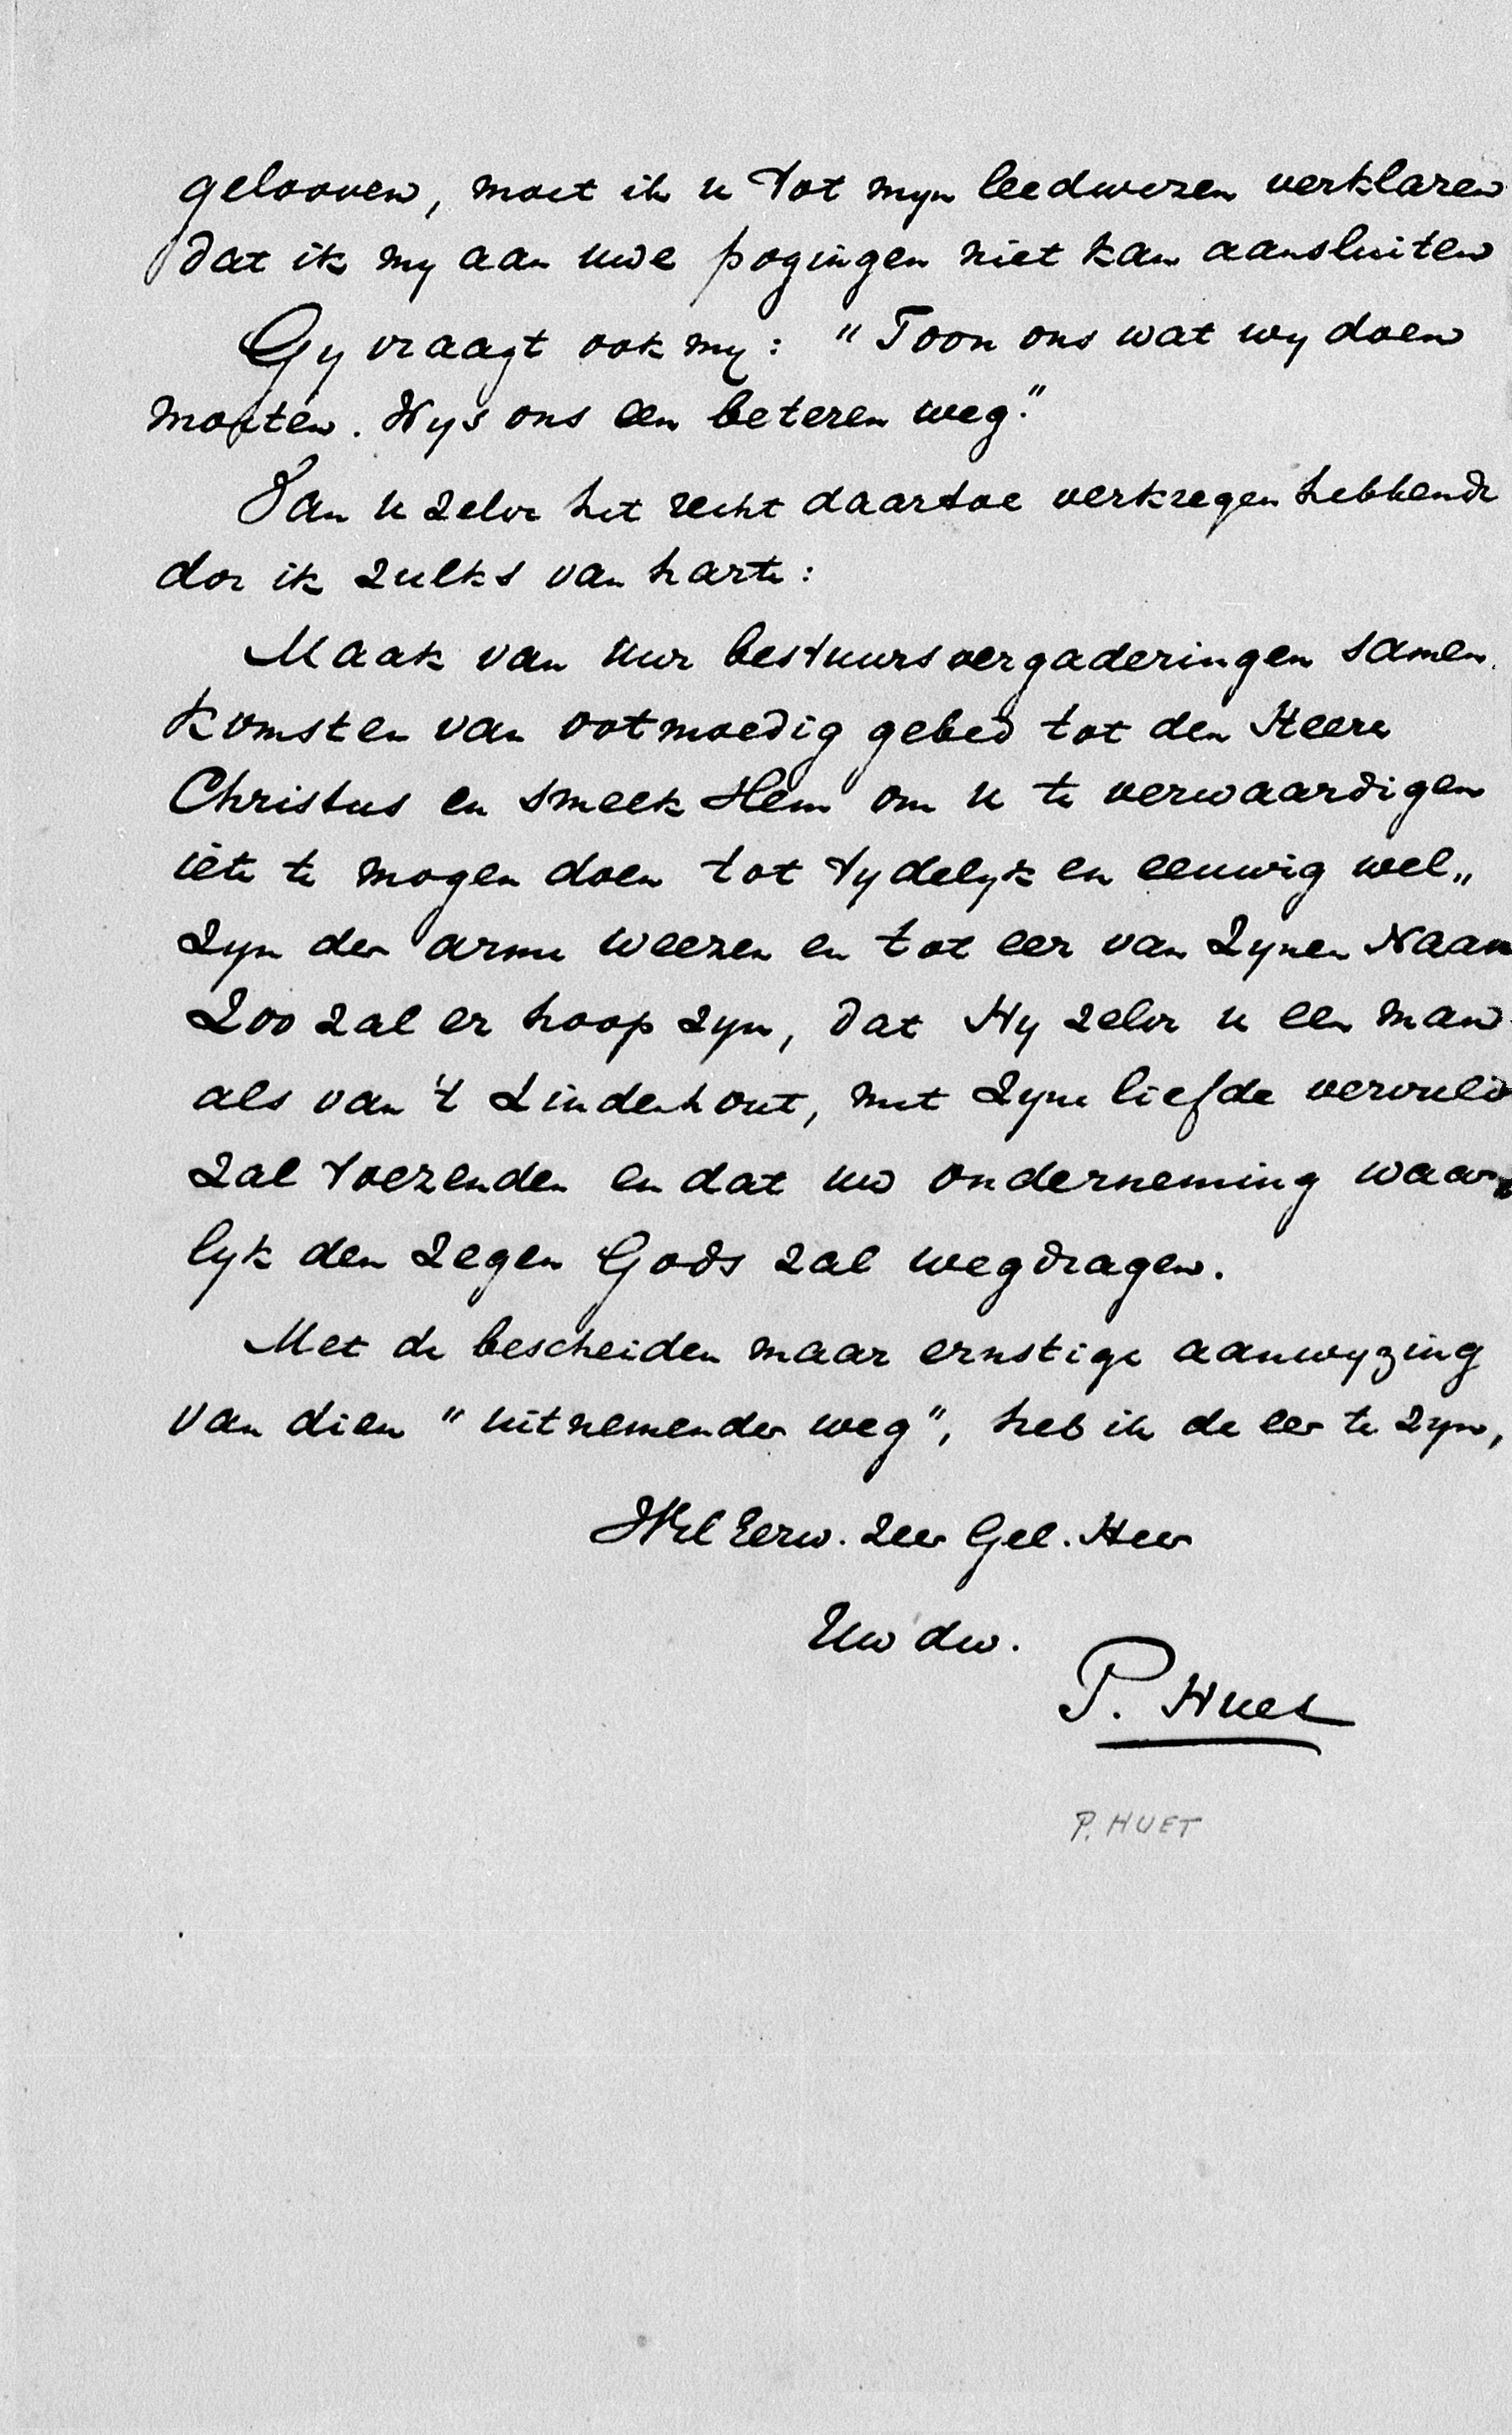 gelooven, moet ik u tot myn leedwezen verklaren
dat ik my aan uwe pogingen niet kan aansluiten
Gy vraagt ook my: "Toon ons wat wy doen
moeten. Wys ons een beteren weg."
Van u zelve het recht daartoe verkregen hebbende
doe ik zulks van harte:
Maak van uwe bestuursvergaderingen samen
komsten van ootmoedig gebed tot den Heere
Christus en smeek Hem om u te verwaardigen
iets te mogen doen tot tydelyk en eeuwig wel„
zyn der arme weezen en tot eer van Zynen Naam
Zoo zal er hoop zyn, dat Hy zelve u een man
als van 't Lindenhout, met Zyne liefde vervuld
zal toezenden en dat uw onderneming waar„
lyk den zegen Gods zal wegdragen.
Met de bescheiden maar ernstige aanwyzing
van dien "uitnemender weg", heb ik de eer te zyn,
Wel Eerw. Zeer Gel. Heer
Uw dw.
P. Huet
P. HUET